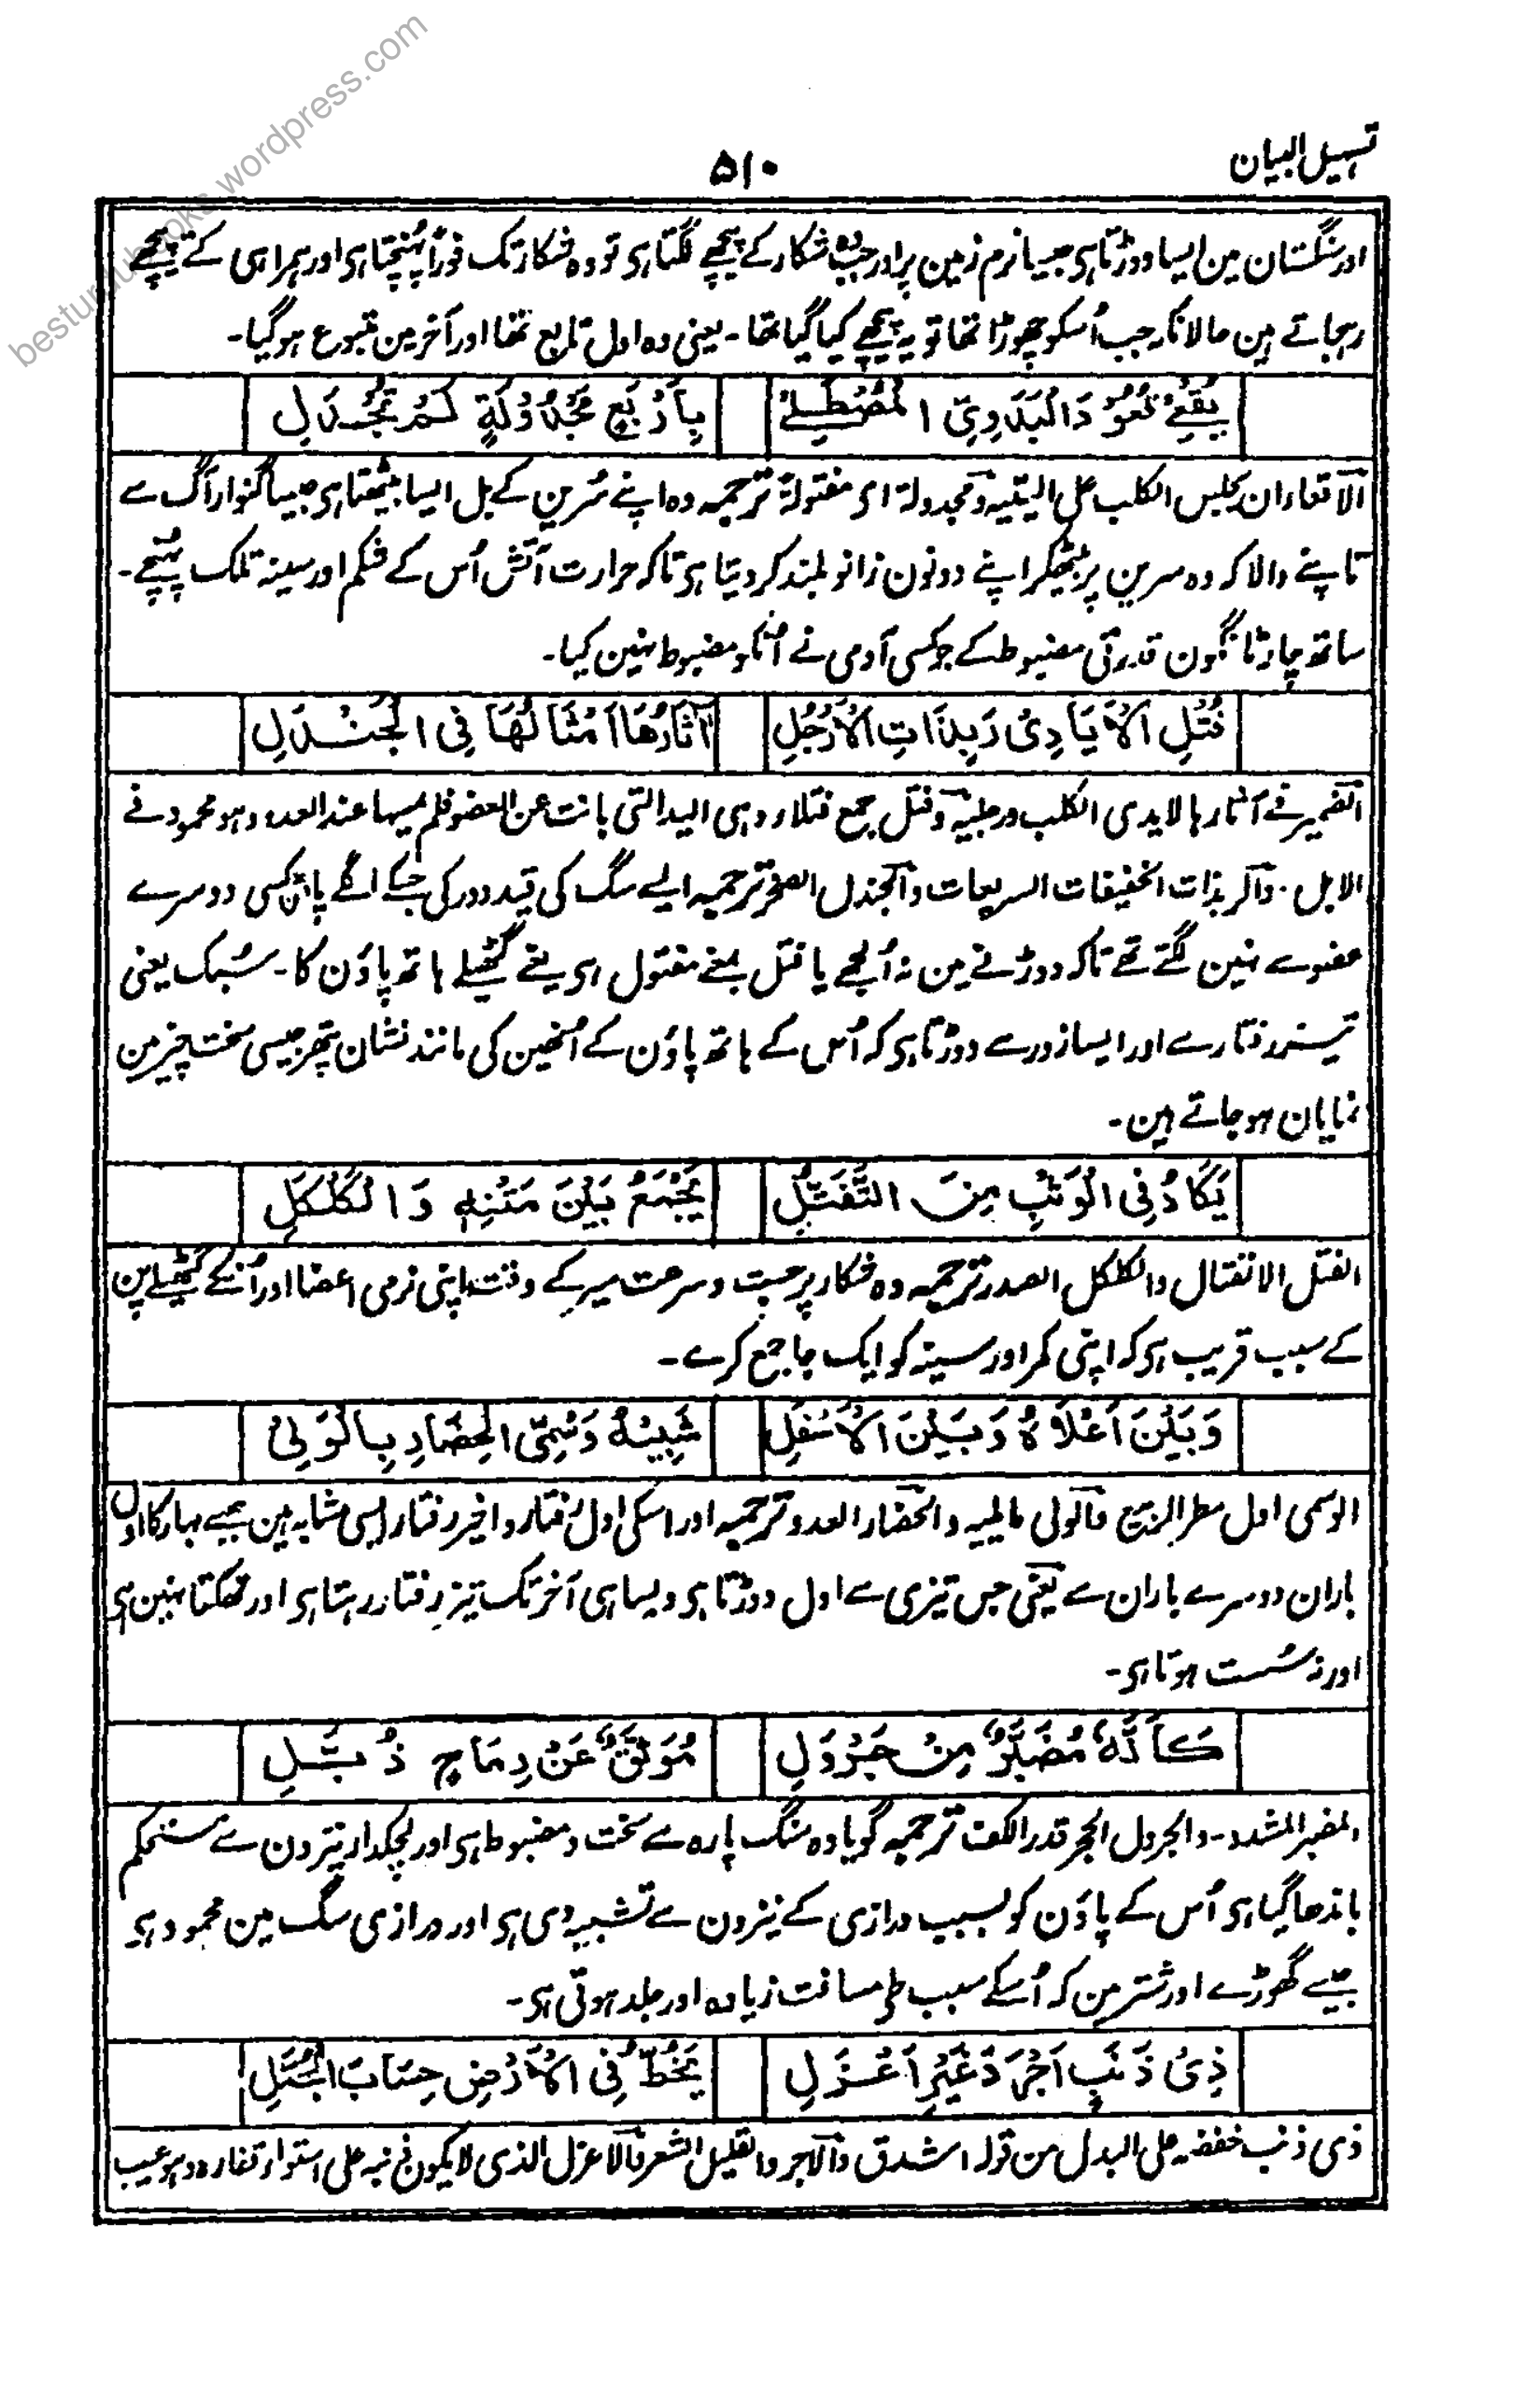 besturdubooks.wordpress.com
تسہیل البیان
۵۱۰
اور سنگستان مین ایسا دوڑتا ہی جیسا نرم زمین پر اور جب وہ شکار کے پیچھے لگتا ہی تو وہ شکار تک فوراً پہنچتا ہی اور ہمراہی کتے پیچھے
رہجاتے ہین حالانکہ جب اُسکو چھوڑا تھا تو یہ پیچھے کیا گیا تھا - یعنی وہ اول تابع تھا اور آخر مین متبوع ہو گیا -
یُقْعِیْ جُلُوْسَ الْبَدَوِیِّ الْمُصْطَلِیْ بِاَرْبَعٍ مَجْدُوْلَةٍ لَمْ تُجْدَلِ
الاقعاء ان یجلس الکلب علی الیتیہ و مجدولة ای مفتولة ترجمہ وہ اپنے سُرین کے بل ایسا بیٹھتا ہی جیسا گنوار آگ سے
تاپنے والا کہ وہ سرین پر بیٹھکر اپنے دونون زانو بلند کر دیتا ہی تاکہ حرارت آتش اُس کے شکم اور سینہ تلک پہنچے -
ساتھ چار ٹانگون قدرتی مضبوط کے جو کسی آدمی نے اُنکو مضبوط نہین کیا -
فُتْلِ الْاَیَادِیْ رَبِذَاتِ الْاَرْجُلِ آثَارُهَا اَمْثَالُهَا فِی الْجَنْدَلِ
الضمیر فے آثارہا لایدی الکلب و رجلیہ و فتل جمع فتلاء وہی الید التی بانت عن العضو فلم یمسہا عند العدو وہو محمود فے
الابل . والربذات الخفیفات السریعات والجندل الصخر ترجمہ ایسے سگ کی قید دور کی جسکے اگلے پاؤن کسی دوسرے
عضو سے نہین لگتے تھے تاکہ دوڑنے مین نہ اُلجھے یا فتل بمعنے مفتول ہی یعنے گٹھیلے ہاتھ پاؤن کا - سُبک یعنی
تیز رفتار ہے اور ایسا زور سے دوڑتا ہی کہ اُس کے ہاتھ پاؤن کے اُنھین کی مانند نشان پتھر جیسی سخت چیز مین
نمایان ہو جاتے ہین -
یَکَادُ فِی الْوَثْبِ مِنَ التَّفَتُّلِ یَجْمَعُ بَیْنَ مَتْنِهٖ وَالْکَلْکَلِ
الفتل الانفتال والکلکل الصدر ترجمہ وہ شکار پر جست و سرعت سیر کے وقت اپنی نرمی اعضا اور اُنکے گٹھیلے پن
کے سبب قریب ہی کہ اپنی کمر اور سینہ کو ایک جا جمع کرے -
وَبَیْنَ اَعْلَاهُ وَبَیْنَ الْاَسْفَلِ شَبِیْهُ وَسْمِیِّ الْحِضَارِ بِالْوَلِیْ
الوسمی اول مطر الربیع والولی ما یلیہ والحضار العدو ترجمہ اور اسکی اول رفتار و اخیر رفتار ایسی مشابہ ہین جیسے بہار کا اول
باران دوسرے باران سے یعنی جس تیزی سے اول دوڑتا ہی ویسا ہی آخر تک تیز رفتار رہتا ہی اور تھکتا نہین ہی
اور نہ سُست ہوتا ہی -
کَاَنَّهٗ مُضَبَّرٌ مِنْ جَرْوَلِ مُوَثَّقٌ عَنْ رِمَاحٍ ذُبَّلِ
المضبر المشدد - والجرول الحجر قدر الکف ترجمہ گویا وہ سنگ پارہ سے سخت و مضبوط ہی اور لچکدار نیزون سے مستحکم
باندھا گیا ہی اُس کے پاؤن کو بسبب درازی کے نیزون سے تشبیہ دی ہی اور درازی سگ مین محمود ہی
جیسے گھوڑے اور شتر مین کہ اُسکے سبب طی مسافت زیادہ اور جلد ہوتی ہی -
ذِیْ ذَنَبٍ اَجْرَدَ غَیْرِ اَعْزَلِ یَخُطُّ فِی الْاَرْضِ حِسَابَ الْجُمَّلِ
ذی ذنب خفضہ علی البدل من قولہ اشدق والاجرد القلیل الشعر والاعزل الذی لا یکون ذنبہ علی استواء قفارہ وہو عیب